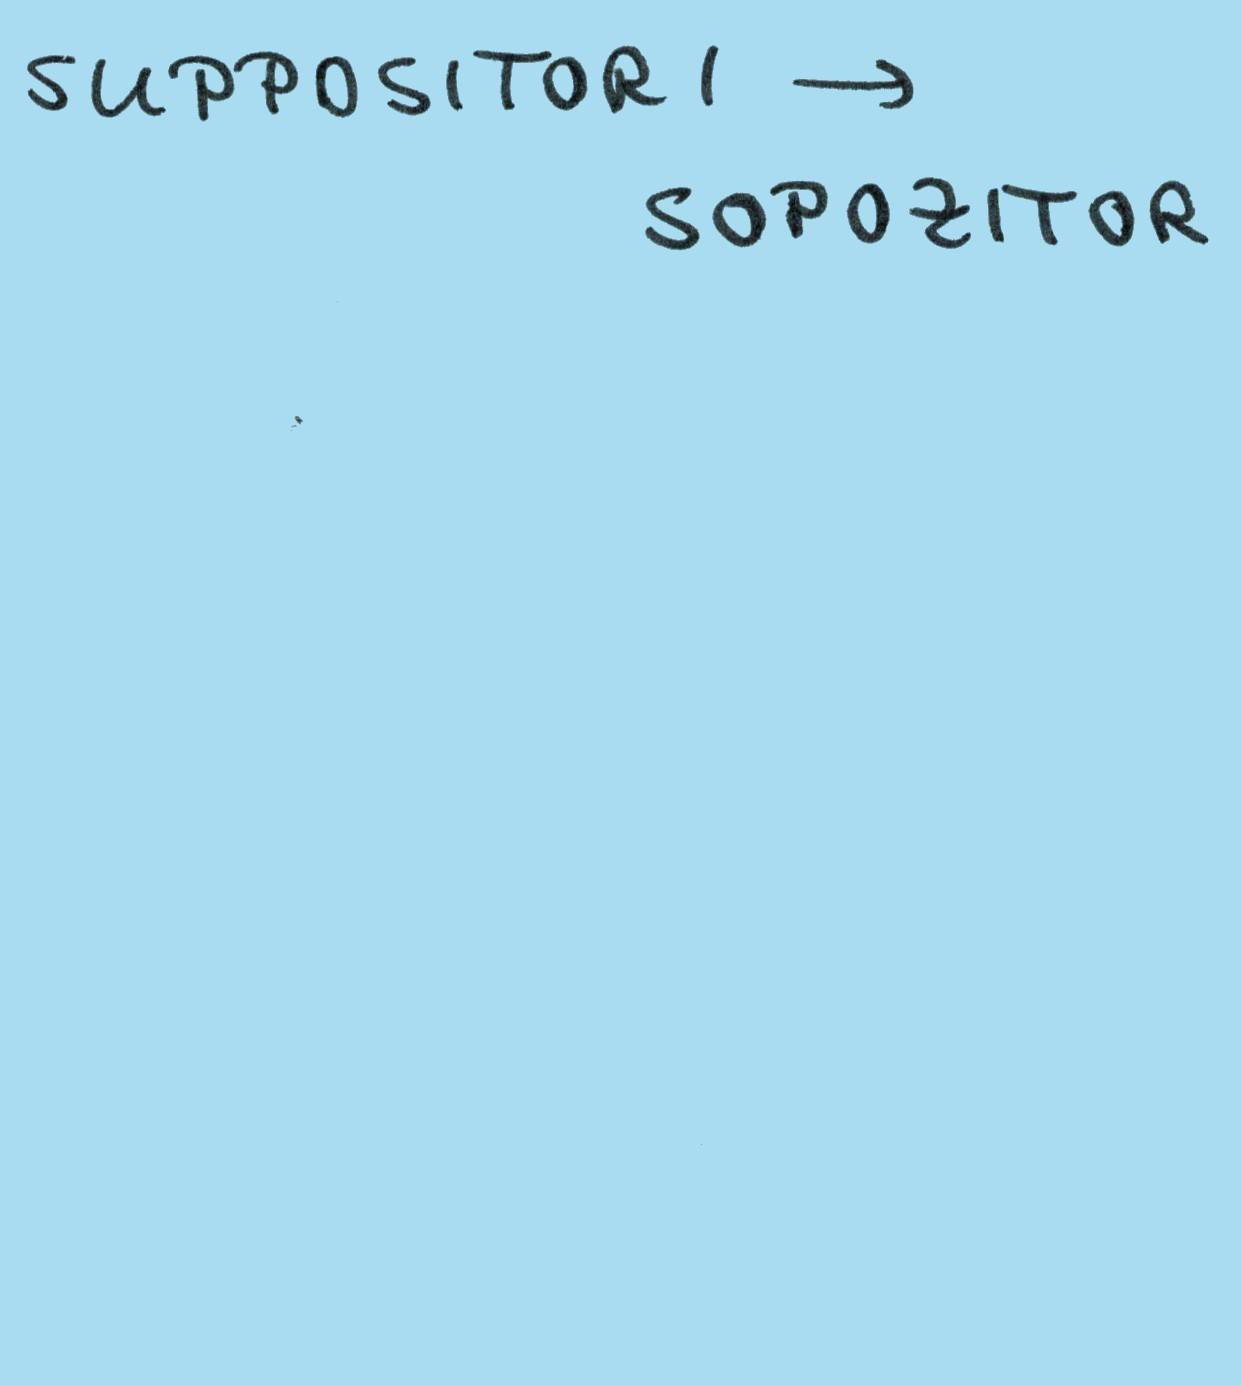 SUPPOSITORI →
SOPOZITOR